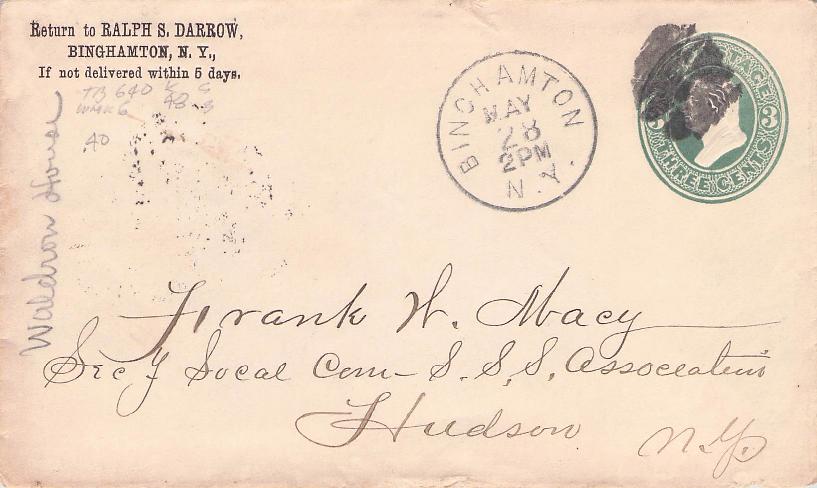 Return to RALPH S. DARROW,
BINGHAMTON, N. Y.,
If not delivered within 5 days.
TB 640
48
40
Waldron House
BINGHAMTON
MAY
28
2PM
N.Y.
3
THREE CENTS
Frank W. Macy
Sec'y Local Com- S. S. S. Association
Hudson N.Y.